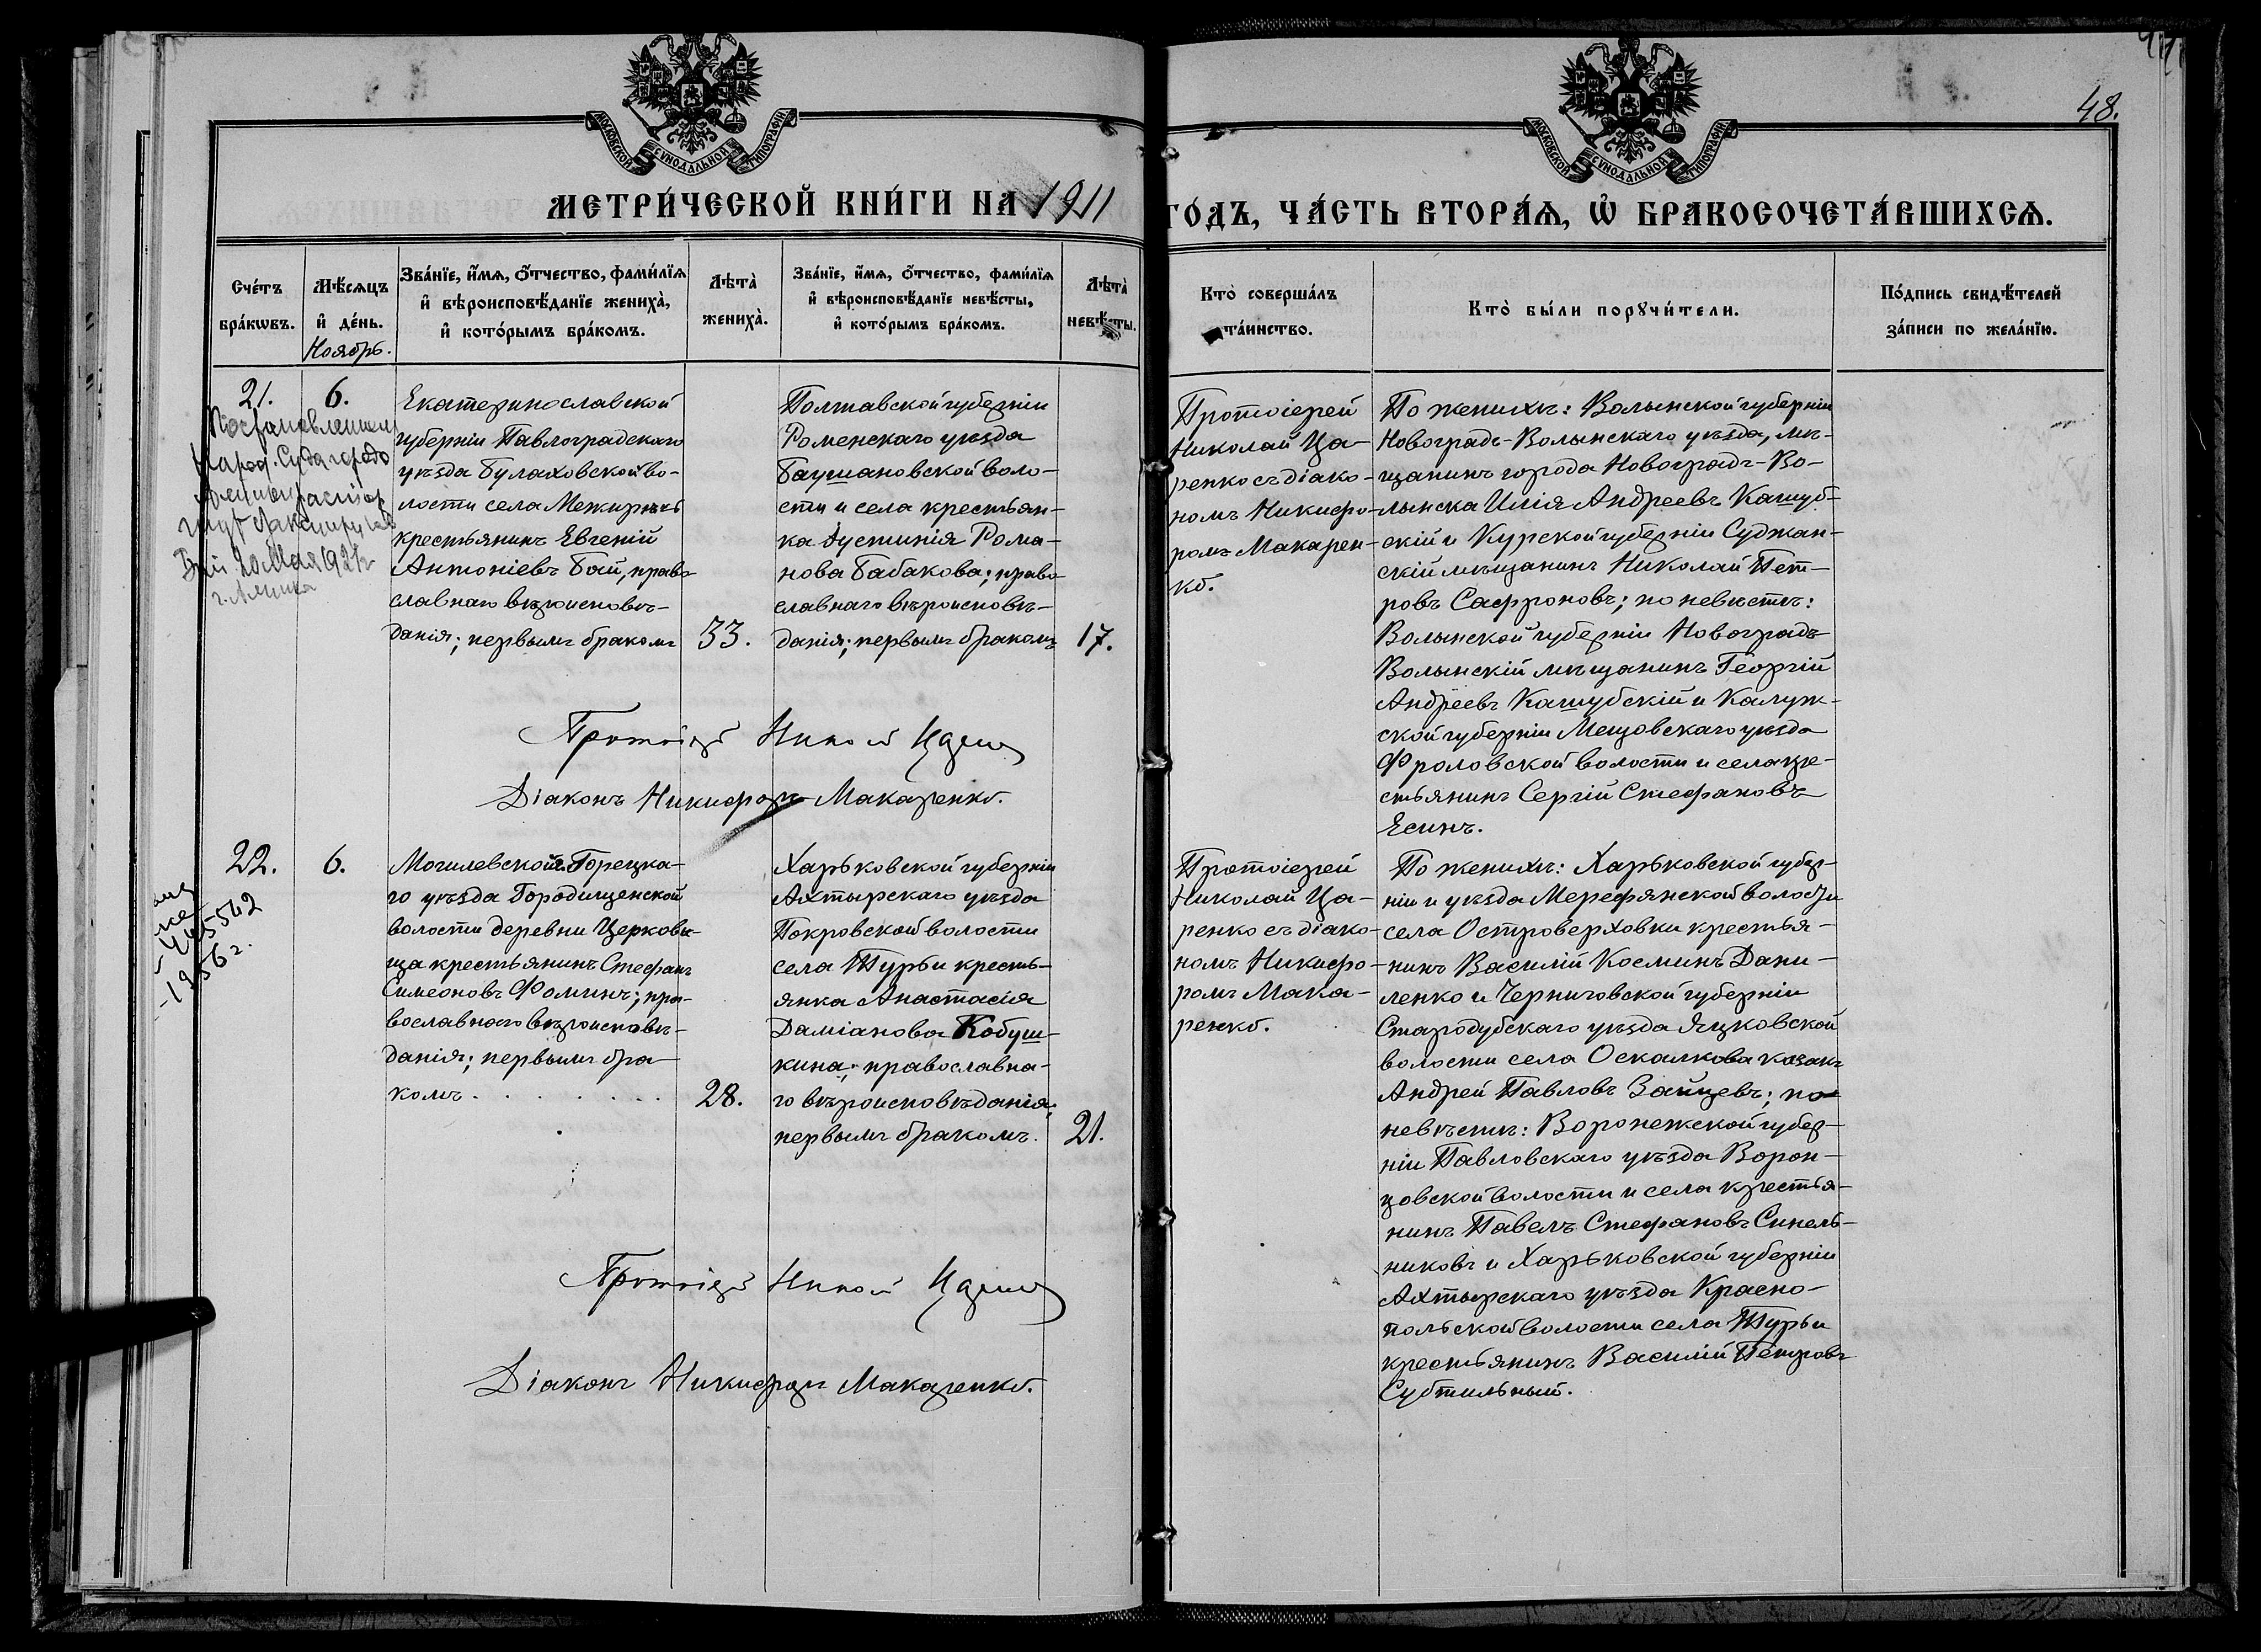 48.
МОСКОВСКОЙ СѴНОДАЛЬНОЙ ТИПОГРАФІИ
МОСКОВСКОЙ СѴНОДАЛЬНОЙ ТИПОГРАФІИ
МЕТРИ́ЧЕСКОЙ КНИ́ГИ НА 1911
ГО́ДЪ, ЧА́СТЬ ВТОРА́Ѧ, Ѡ БРАКОСОЧЕТА́ВШИХСѦ.
Сче́тъ
бра́кѡвъ.
Мѣ́сѧцъ
и҆ де́нь.
Ноябрь.
Зва́нїе, и҆́мѧ, ѻ҆́тчество, фами́лїѧ
и҆ вѣроисповѣ́данїе жениха̀,
и҆ кото́рымъ бра́комъ.
Лѣта̀
жениха̀.
Зва́нїе, и҆́мѧ, ѻ҆́тчество, фами́лїѧ
и҆ вѣроисповѣ́данїе невѣ́сты,
и҆ кото́рымъ бра́комъ.
Лѣта̀
невѣ́сты.
Кто̀ соверша́лъ
та́инство.
Кто̀ бы́ли порꙋчи́тели.
По́дпись свидѣ́телей
за́писи по жела́нїю.
21.
6.
Постановлением
Народ. Суда
20 Мая 192
Екатеринославской
губерніи Павлоградскаго
уѣзда Булаховской во-
лости села Межирѣчь
крестьянинъ Евгеній
Антоніевъ Бай, право-
славнаго вѣроисповѣ-
данія; первымъ бракомъ
33.
Полтавской губерніи
Роменскаго уѣзда
Баушановской воло-
сти и села крестьян-
ка Іустинія Рома-
нова Бабакова; право-
славнаго вѣроисповѣ-
данія; первымъ бракомъ
17.
Протоіерей
Николай Ца-
ренко съ діако-
номъ Никифо-
ромъ Макарен-
ко.
По женихѣ: Волынской губерніи
Новоградъ-Волынскаго уѣзда, мѣ-
щанинъ города Новоградъ-Во-
лынска Илія Андреевъ Кашуб-
скій и Курской губерніи Суджан-
скій мѣщанинъ Николай Пет-
ровъ Сафроновъ; по невѣстѣ:
Волынской губерніи Новоградъ
Волынскій мѣщанинъ Георгій
Андреевъ Кашубскій и Калуж-
ской губерніи Мещовскаго уѣзда
Фроловской волости и села кре-
стьянинъ Сергій Стефановъ
Есинъ.
Протоіерей Николай Царенко
Діаконъ Никифоръ Макаренко.
22.
6.
465542
1956 г.
Могилевской г. Горецка-
го уѣзда Городищенской
волости деревни Церкови-
ща крестьянинъ Стефанъ
Симеоновъ Фоминъ; пра-
вославнаго вѣроисповѣ-
данія; первымъ бра-
комъ . . . . . . .
28.
Харьковской губерніи
Ахтырскаго уѣзда
Покровской волости
села Турьи кресть-
янка Анастасія
Даміанова Кобуш-
кина; православна-
го вѣроисповѣданія;
первымъ бракомъ.
21.
Протоіерей
Николай Ца-
ренко съ діако-
номъ Никифо-
ромъ Мака-
ренко.
По женихѣ: Харьковской губер-
ніи и уѣзда Мерефянской волости
села Островерховки крестья-
нинъ Василій Косминъ Дани-
ленко и Черниговской губерніи
Стародубскаго уѣзда Яцковской
волости села Оскалкова казакъ
Андрей Павловъ Зайцевъ; по
невѣстѣ: Воронежской губер-
ніи Павловскаго уѣзда Ворон-
цовской волости и села крестья-
нинъ Павелъ Стефановъ Синель-
никовъ и Харьковской губерніи
Ахтырскаго уѣзда Красно-
польской волости села Турьи
крестьянинъ Василій Петровъ
Субтильный.
Протоіерей Николай Царенко
Діаконъ Никифоръ Макаренко.